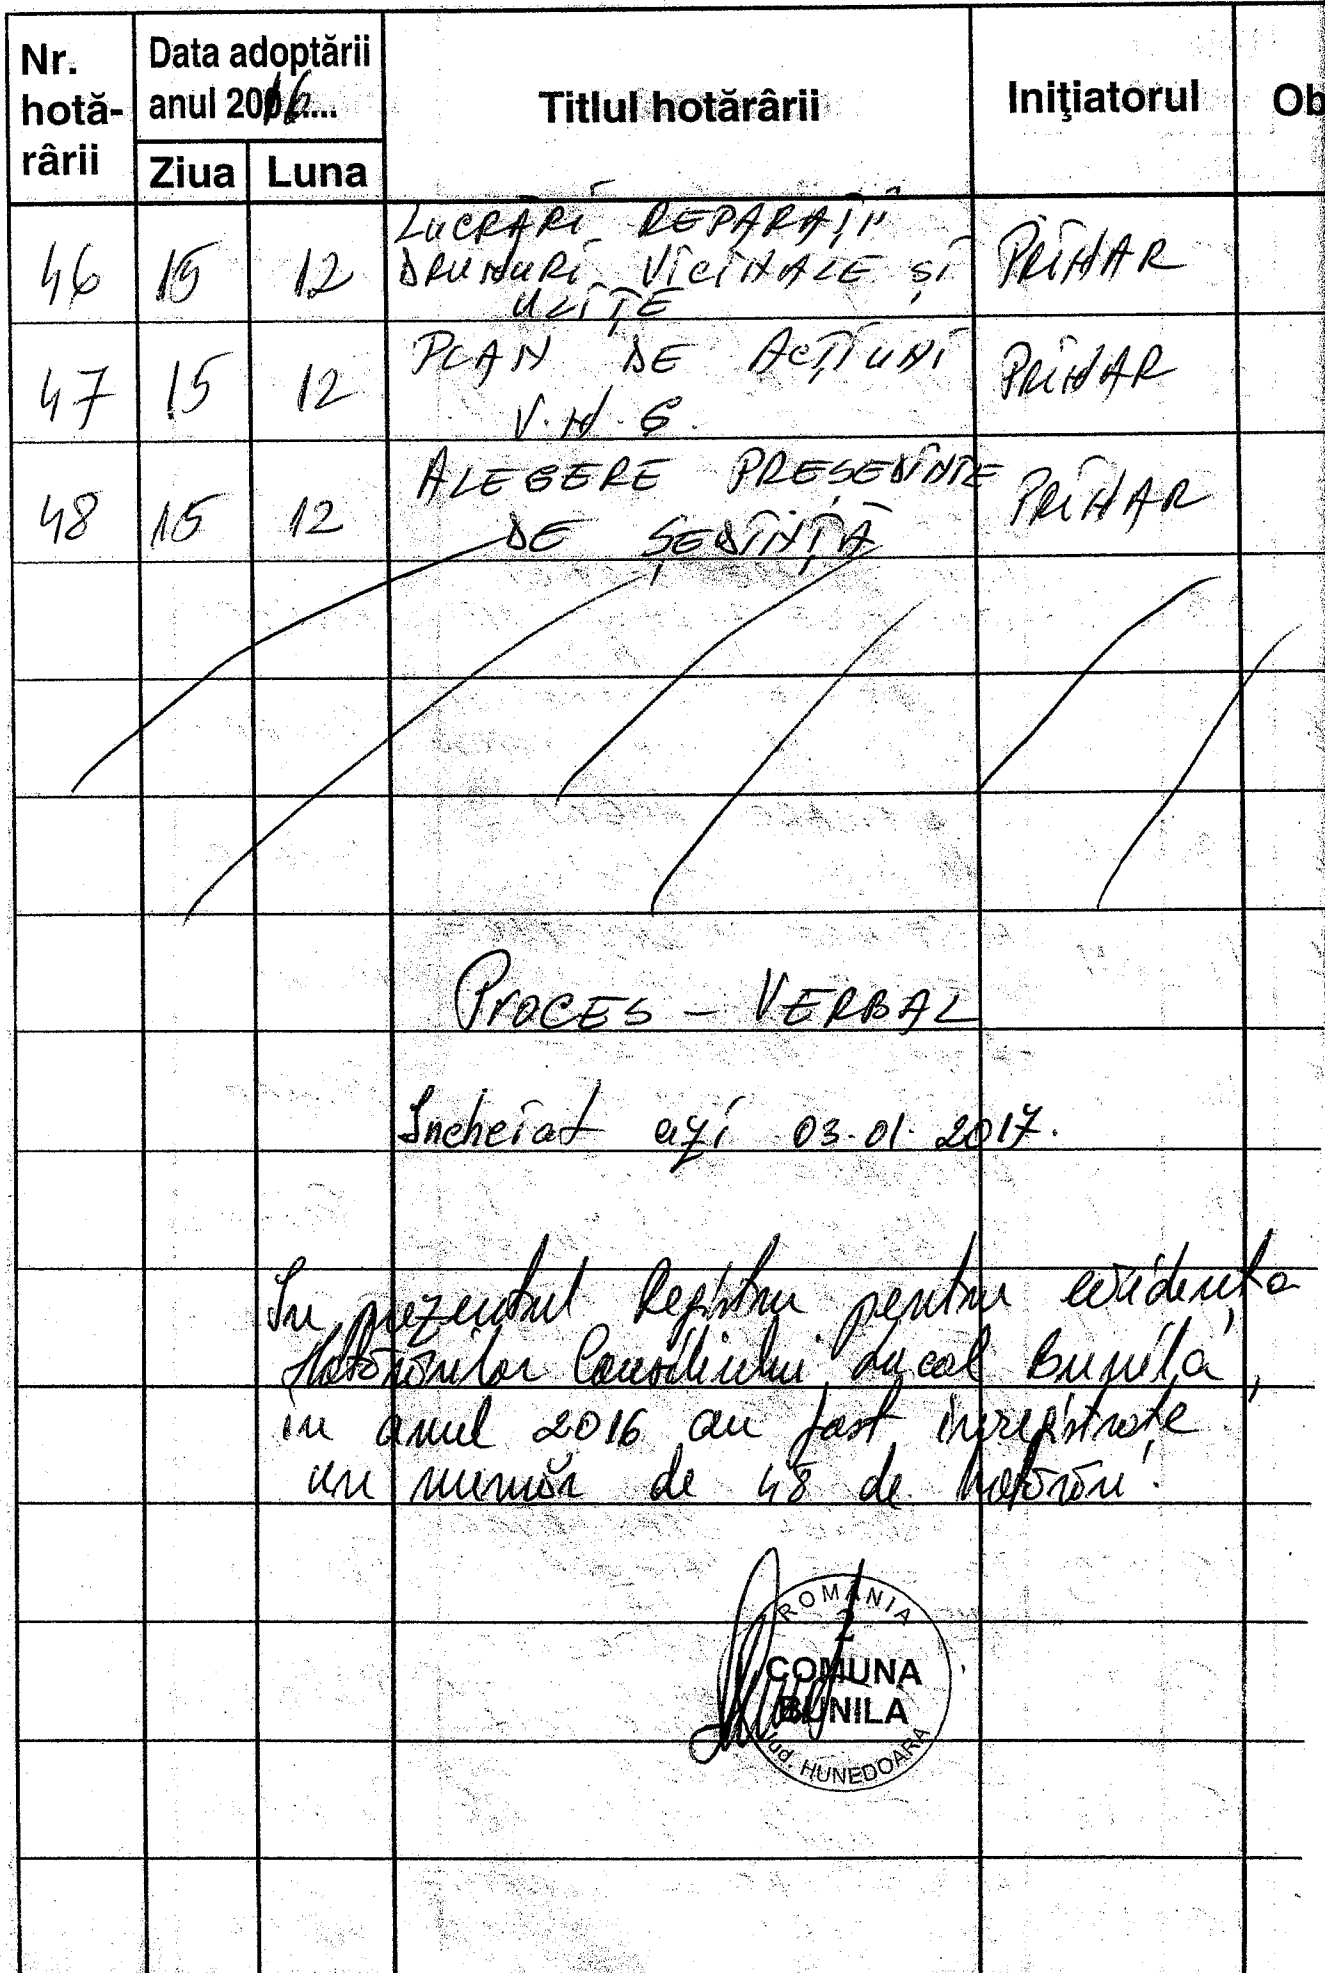 Nr. hotă-rârii | Data adoptării anul 2016.... | Titlul hotărârii | Iniţiatorul | Ob
Ziua | Luna
46 | 15 | 12 | LUCRĂRI REPARAȚII
DRUMURI VICINALE ȘI
ULIȚE | PRIMAR
47 | 15 | 12 | PLAN DE ACȚIUNI
V.M.G. | PRIMAR
48 | 15 | 12 | ALEGERE PREȘEDINTE
DE ȘEDINȚĂ | PRIMAR
PROCES - VERBAL
Încheiat azi 03.01.2017.
În prezentul Registru pentru evidența
Hotărârilor Consiliului Local Bunila,
în anul 2016 au fost înregistrate
un număr de 48 de hotărâri.
ROMÂNIA
2
COMUNA
BUNILA
Jud. HUNEDOARA